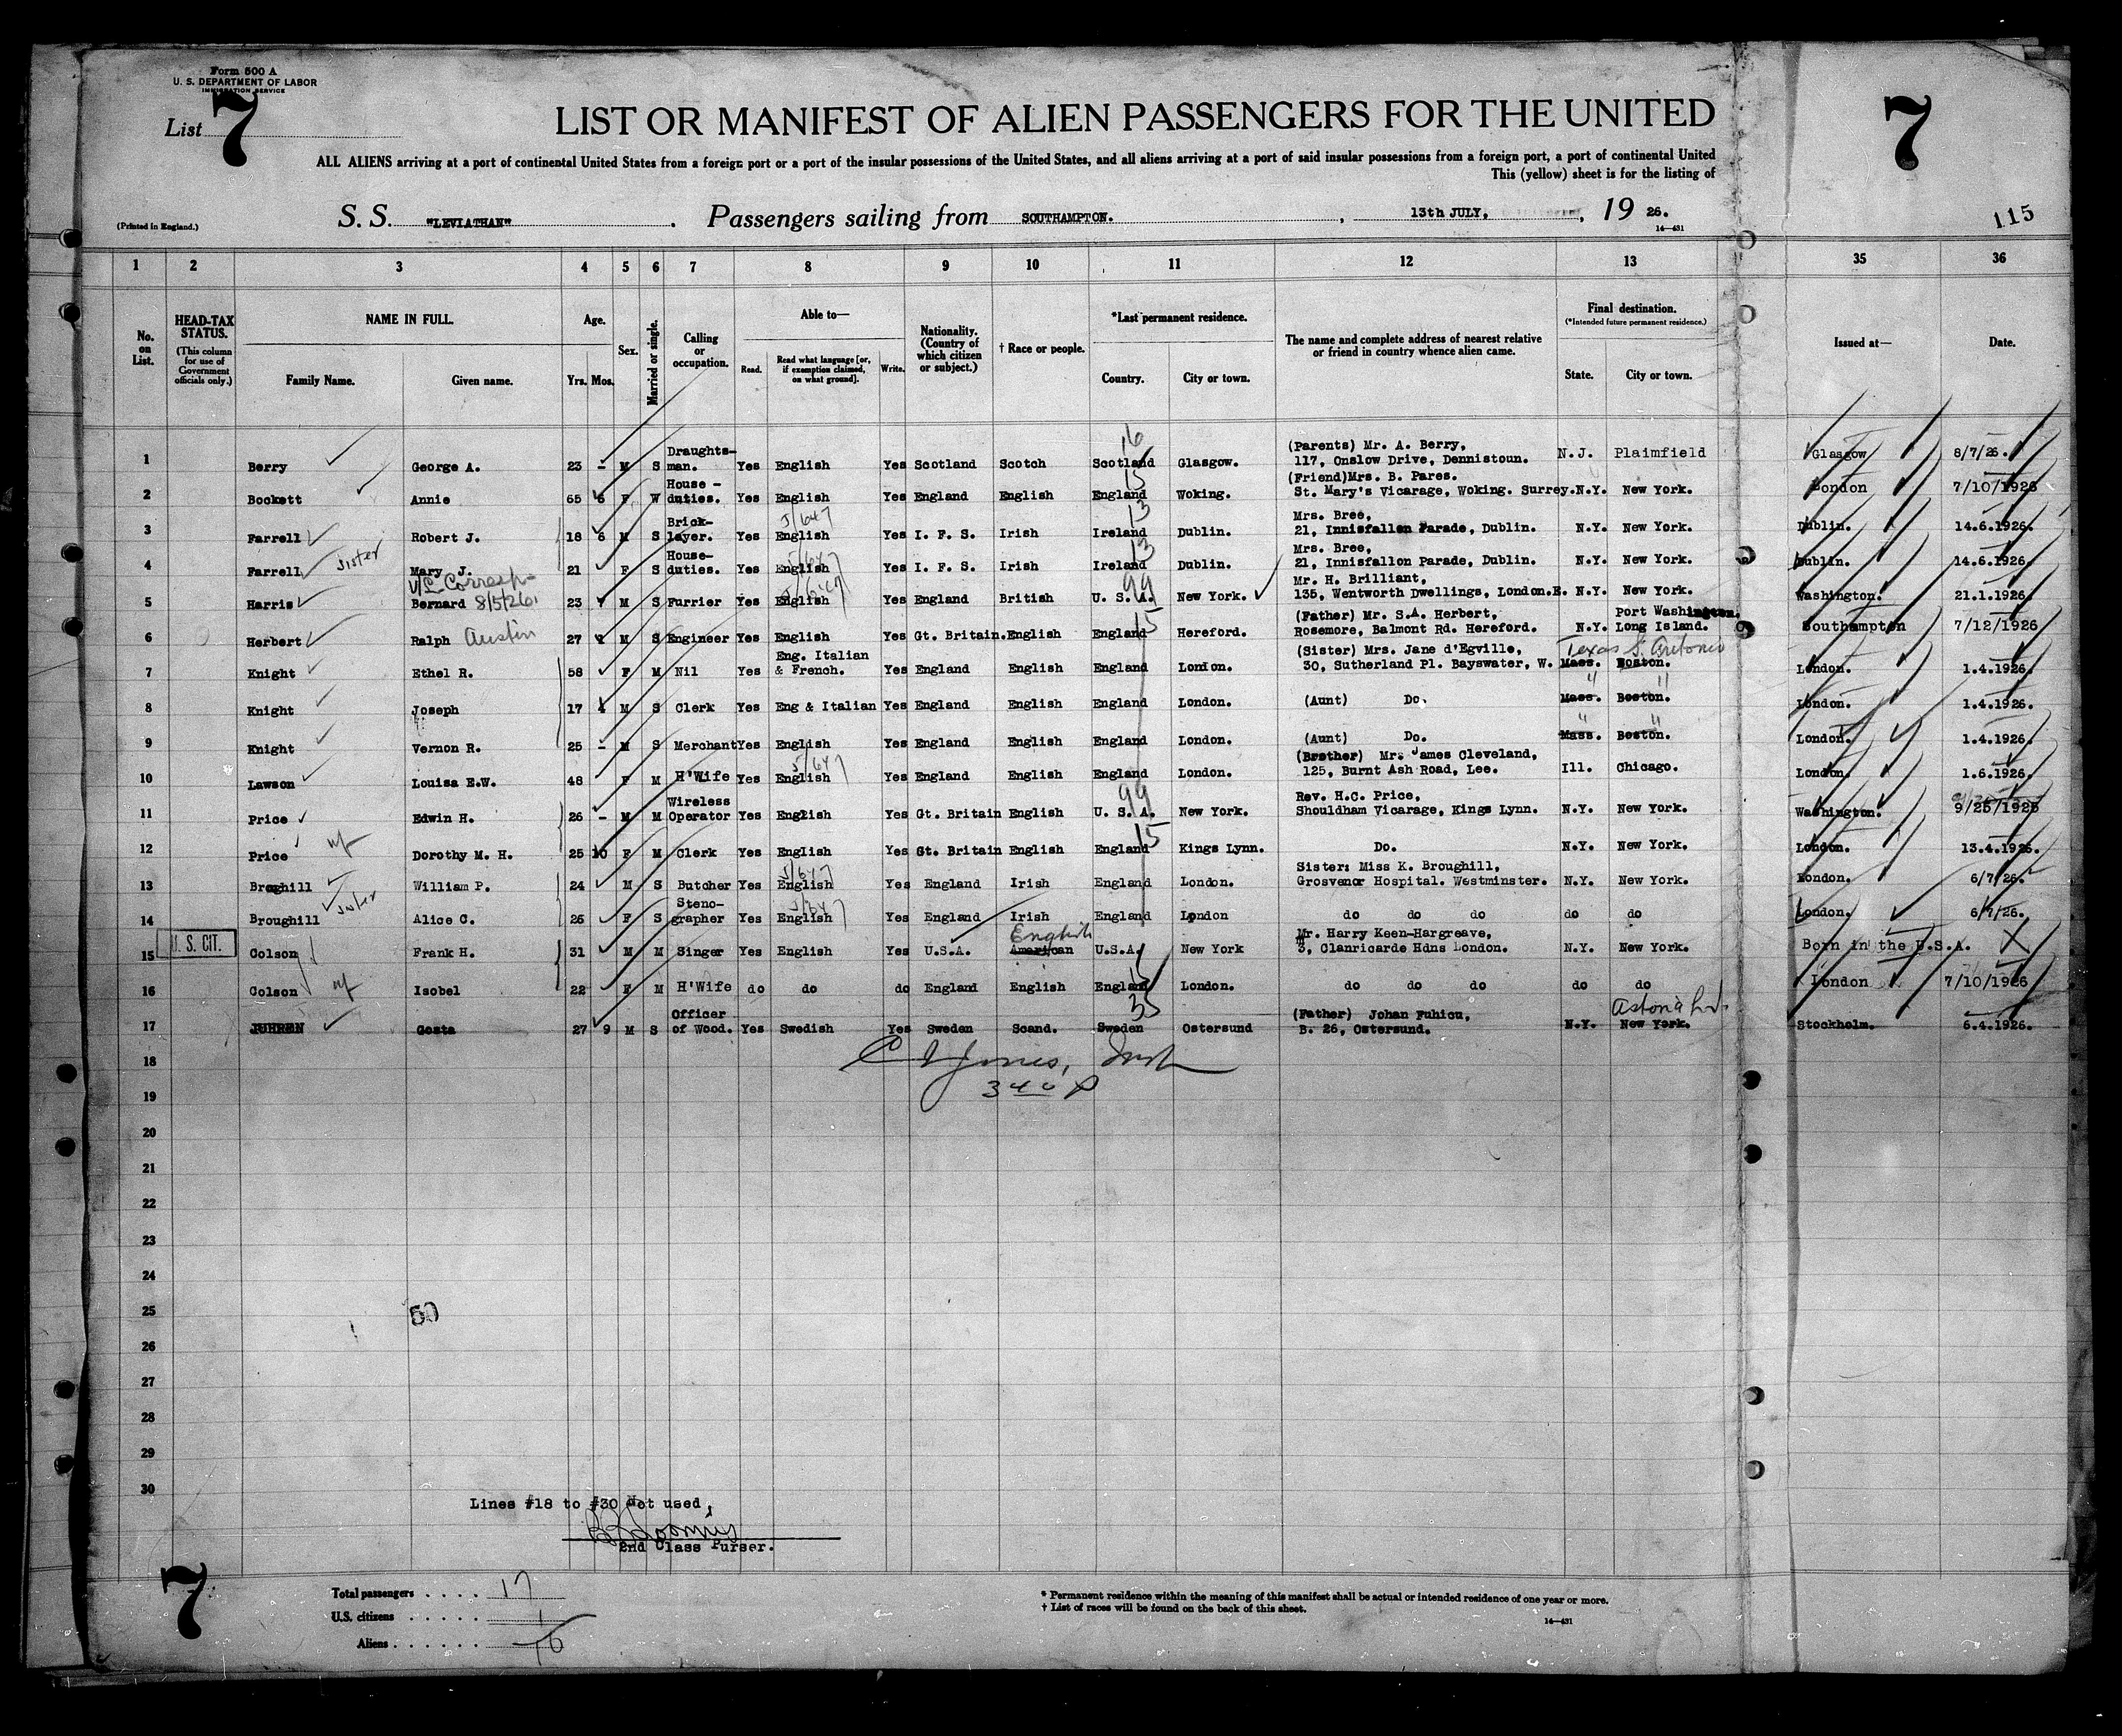 Form 500 A
U. S. DEPARTMENT OF LABOR
IMMIGRATION SERVICE
List 7
LIST OR MANIFEST OF ALIEN PASSENGERS FOR THE UNITED
7
ALL ALIENS arriving at a port of continental United States from a foreign port or a port of the insular possessions of the United States, and all aliens arriving at a port of said insular possessions from a foreign port, a port of continental United
This (yellow) sheet is for the listing of
(Printed in England.)
S. S. "LEVIATHAN". Passengers sailing from SOUTHAMPTON. , 13th JULY, , 19 26.
14—431
115
1 2 3 4 5 6 7 8 9 10 11 12 13 35 36
No. on List.
HEAD-TAX STATUS. (This column for use of Government officials only.)
NAME IN FULL. Family Name. Given name.
Age. Yrs. Mos.
Sex.
Married or single.
Calling or occupation.
Able to— Read. Read what language [or, if exemption claimed, on what ground]. Write.
Nationality. (Country of which citizen or subject.)
† Race or people.
*Last permanent residence. Country. City or town.
The name and complete address of nearest relative or friend in country whence alien came.
Final destination. (*Intended future permanent residence.) State. City or town.
Issued at—
Date.
1 Berry George A. 23 - M S Draughts-man. Yes English Yes Scotland Scotch 16 Scotland Glasgow. (Parents) Mr. A. Berry, 117, Onslow Drive, Dennistoun. N.J. Plaimfield Glasgow 8/7/26.
2 Bockett Annie 65 6 F W House-duties. Yes English Yes England English 15 England Woking. (Friend)Mrs. B. Pares. St. Mary's Vicarage, Woking. Surrey. N.Y. New York. London 7/10/1926
3 Farrell Robert J. 18 6 M S Brick-layer. Yes English Yes I. F. S. Irish 13 Ireland Dublin. Mrs. Bree, 21, Innisfallen Parade, Dublin. N.Y. New York. Dublin. 14.6.1926.
4 Farrell sister Mary J. 21 F S House-duties. Yes English Yes I. F. S. Irish 13 Ireland Dublin. Mrs. Bree, 21, Innisfallen Parade, Dublin. N.Y. New York. Dublin. 14.6.1926.
5 Harris Bernard 8/5/26 23 7 M S Furrier Yes English Yes England British 99 U. S. A. New York. Mr. H. Brilliant, 135, Wentworth Dwellings, London.E. N.Y. New York. Washington. 21.1.1926.
6 Herbert Ralph Austin 27 M S Engineer Yes English Yes Gt. Britain. English 15 England Hereford. (Father) Mr. S.A. Herbert, Rosemore, Balmont Rd. Hereford. N.Y. Port Washington, Long Island. Southampton 7/12/1926
7 Knight Ethel R. 58 F M Nil Yes Eng. Italian & French. Yes England English England London. (Sister) Mrs. Jane d'Egville, 30, Sutherland Pl. Bayswater, W. Mass. Boston. Texas S. Antonio London. 1.4.1926.
8 Knight Joseph 17 4 M S Clerk Yes Eng & Italian Yes England English England London. (Aunt) Do. Mass. Boston. " " London. 1.4.1926.
9 Knight Vernon R. 25 - M S Merchant Yes English Yes England English England London. (Aunt) Do. Mass. Boston. " " London. 1.4.1926.
10 Lawson Louisa E.W. 48 F M H'Wife Yes English Yes England English England London. (Brother) Mr. James Cleveland, 125, Burnt Ash Road, Lee. Ill. Chicago. London. 1.6.1926.
11 Price Edwin H. 26 - M M Wireless Operator Yes English Yes Gt. Britain English 99 U. S. A. New York. Rev. H.C. Price, Shouldham Vicarage, Kings Lynn. N.Y. New York. Washington. 9/25/1925
12 Price wf Dorothy M. H. 25 10 F M Clerk Yes English Yes Gt. Britain English 15 England Kings Lynn. Do. N.Y. New York. London. 13.4.1926.
13 Broghill William P. 24 M S Butcher Yes English Yes England Irish England London. Sister: Miss K. Broughill, Grosvenor Hospital. Westminster. N.Y. New York. London. 6/7/26.
14 Broughill sister Alice C. 26 F S Steno-grapher Yes English Yes England Irish England London do do do do do London. 6/7/26.
15 U. S. CIT. Colson Frank H. 31 M M Singer Yes English Yes U.S.A. American English U.S.A. New York Mr. Harry Keen-Hargreave, 3, Clanricarde Hdns London. N.Y. New York. Born in the U.S.A. X
16 Colson wf Isobel 22 F M H'Wife do do do England English 15 England London. do do do do do London 7/10/1926
17 JUHREN Gosta 27 9 M S Officer of Wood. Yes Swedish Yes Sweden Scand. 35 Sweden Ostersund (Father) Johan Fuhicu, B. 26, Ostersund. N.Y. New York. Astoria Stockholm. 6.4.1926.
18 Jones,
19 340 P
20
21
22
23
24
25 50
26
27
28
29
30
Lines #18 to #30 Not used,
2nd Class Purser.
7
Total passengers . . . . 17
U.S. citizens . . . . . 1
Aliens . . . . . . 16
* Permanent residence within the meaning of this manifest shall be actual or intended residence of one year or more.
† List of races will be found on the back of this sheet.
14—431